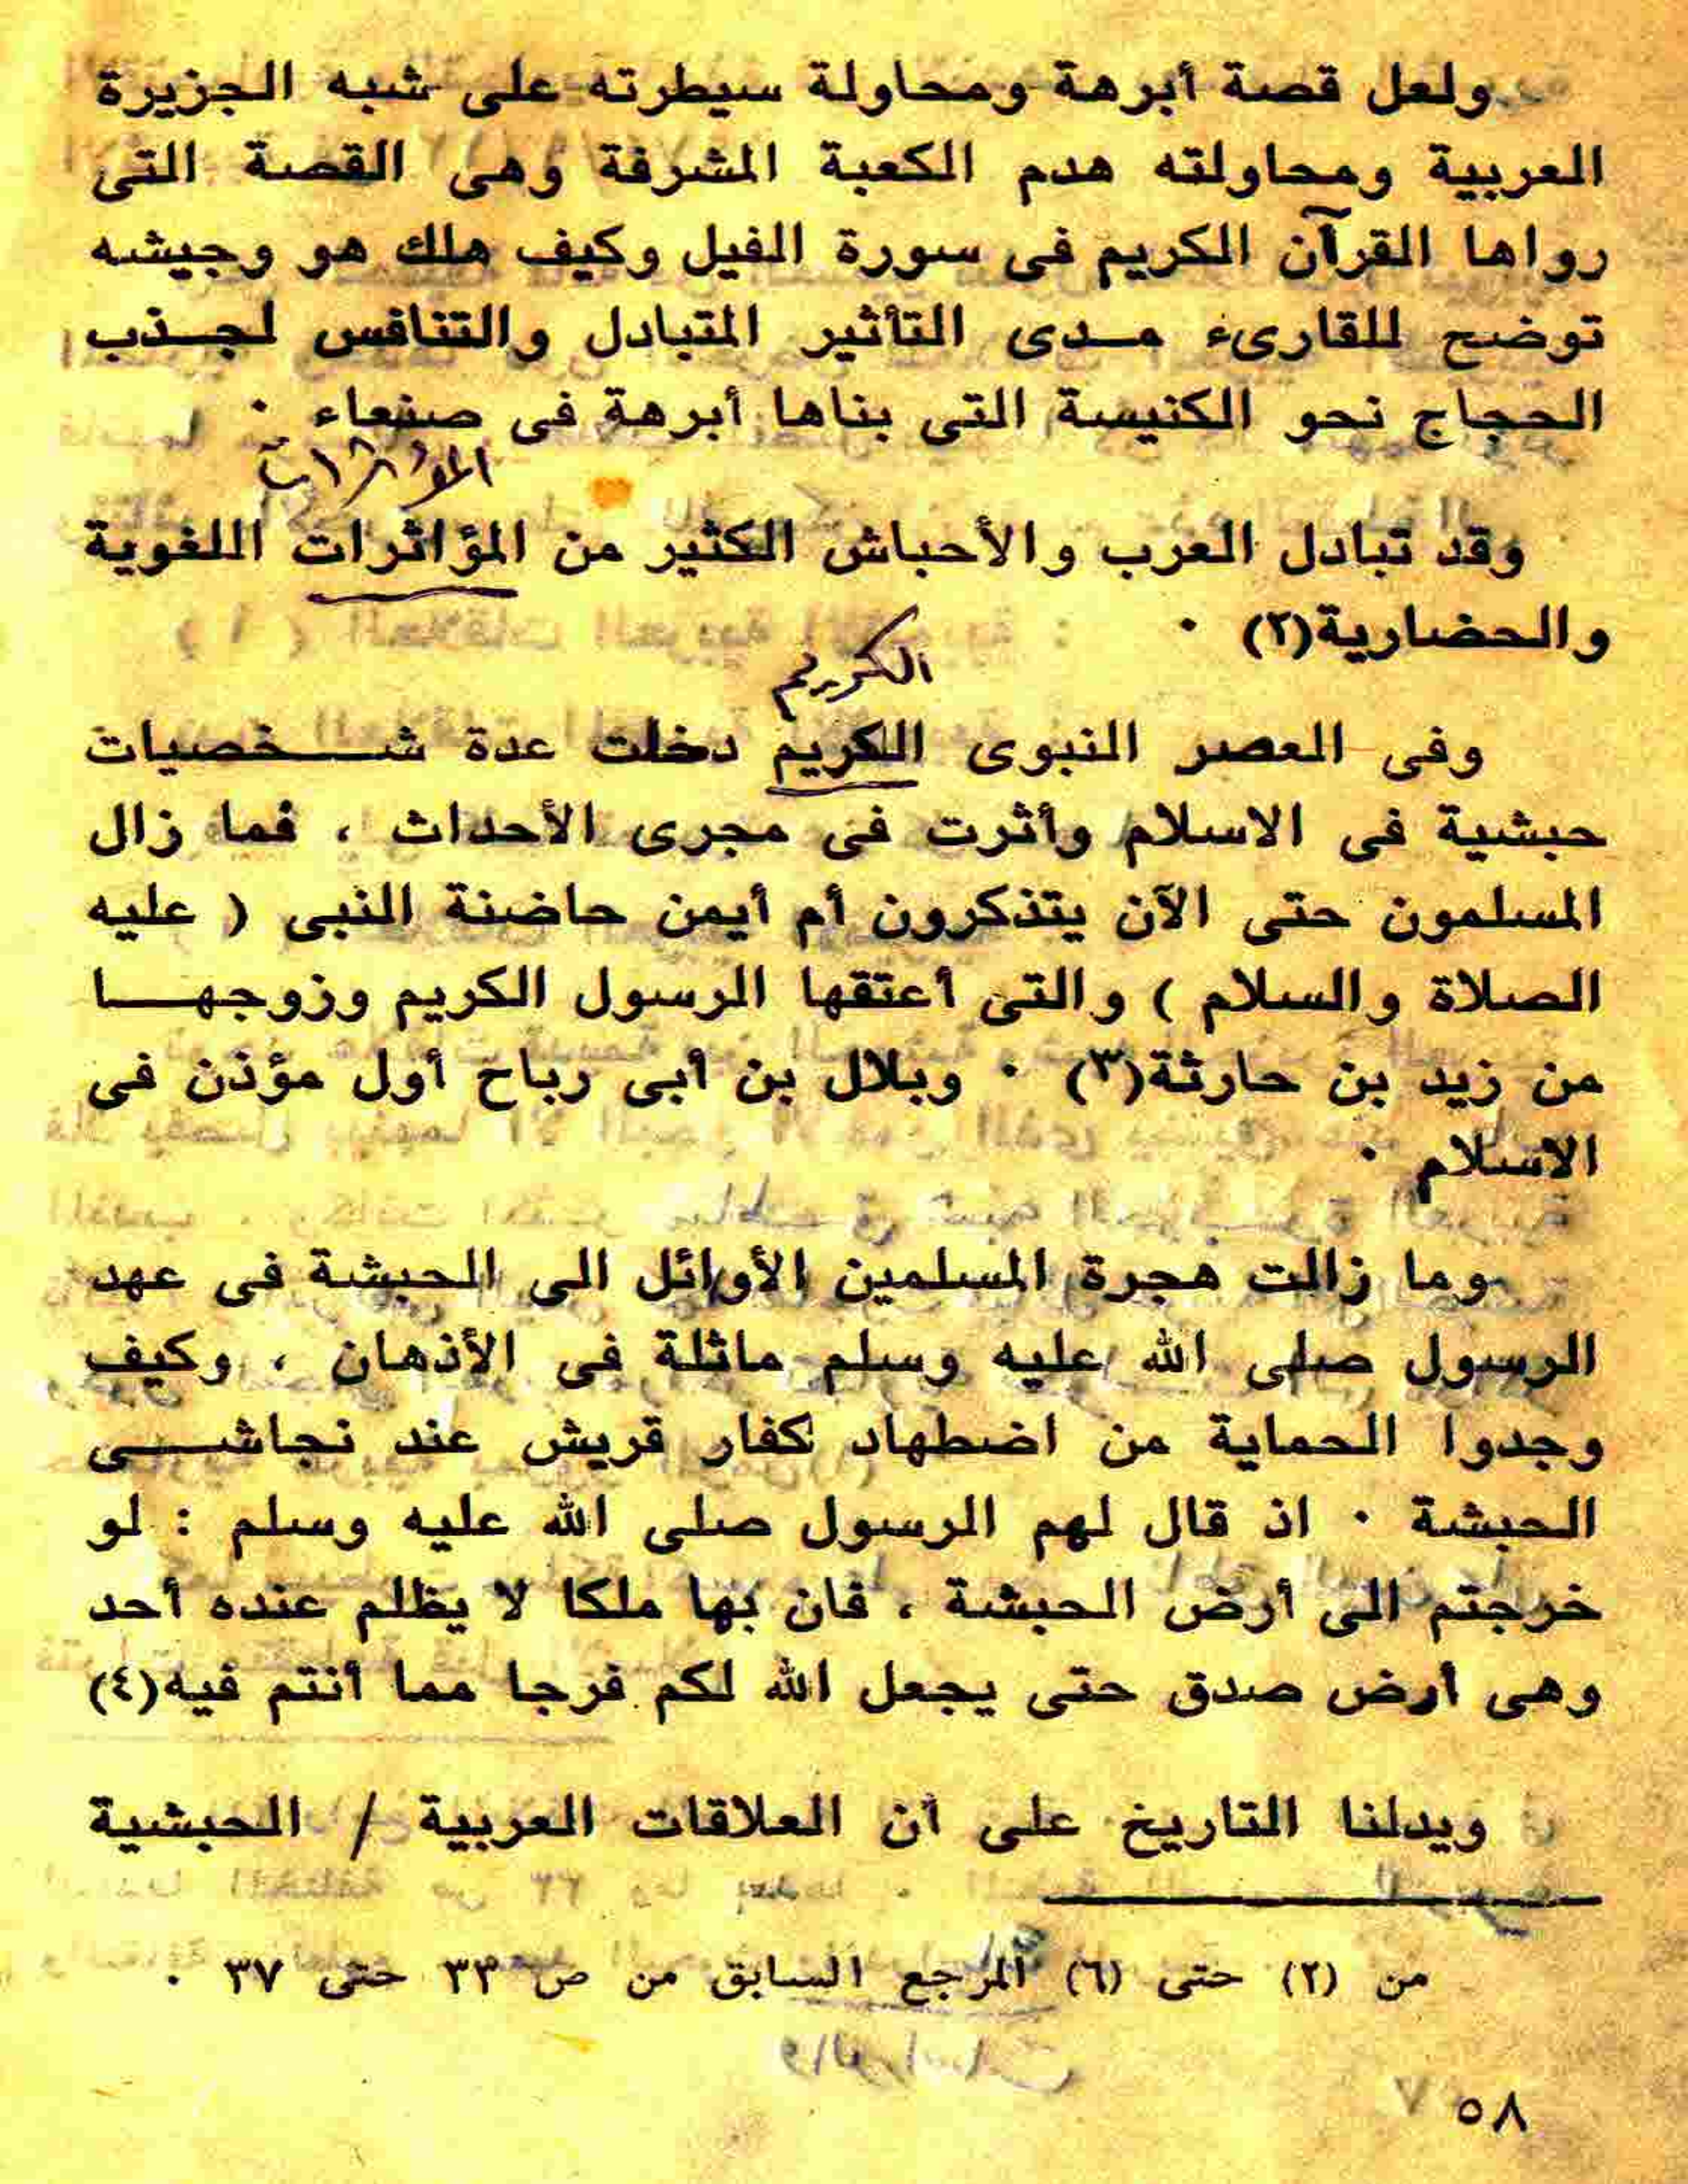 ولعل قصة أبرهة ومحاولة سيطرته على شبه الجزيرة
العربية ومحاولته هدم الكعبة المشرفة وهى القصة التى
رواها القرآن الكريم فى سورة الفيل وكيف هلك هو وجيشه
توضح للقارىء مدى التأثير المتبادل والتنافس لجذب
الحجاج نحو الكنيسة التى بناها أبرهة فى صنعاء .
وقد تبادل العرب والأحباش الكثير من المؤاثرات اللغوية
والحضارية(٢) .
الكريم
وفى العصر النبوى الكريم دخلت عدة شخصيات
حبشية فى الاسلام وأثرت فى مجرى الأحداث ، فما زال
المسلمون حتى الآن يتذكرون أم أيمن حاضنة النبى ( عليه
الصلاة والسلام ) والتى أعتقها الرسول الكريم وزوجها
من زيد بن حارثة(٣) . وبلال بن أبى رباح أول مؤذن فى
الاسلام .
وما زالت هجرة المسلمين الأوائل الى الحبشة فى عهد
الرسول صلى الله عليه وسلم ماثلة فى الأذهان ، وكيف
وجدوا الحماية من اضطهاد كفار قريش عند نجاشى
الحبشة . اذ قال لهم الرسول صلى الله عليه وسلم : لو
خرجتم الى أرض الحبشة ، فان بها ملكا لا يظلم عنده أحد
وهى أرض صدق حتى يجعل الله لكم فرجا مما أنتم فيه(٤)
ويدلنا التاريخ على أن العلاقات العربية / الحبشية
من (٢) حتى (٦) المرجع السابق من ص ٣٣ حتى ٣٧ .
٥٨